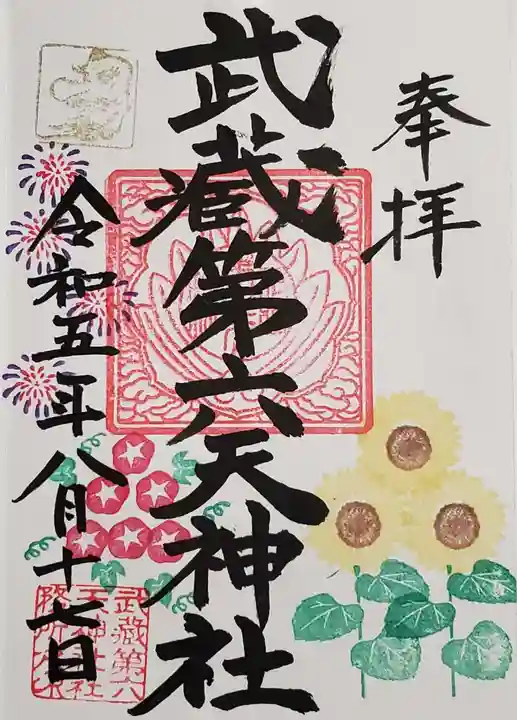 奉拝
武蔵第六天神社
令和五年八月十七日
武蔵第六
天神社社
務所之印